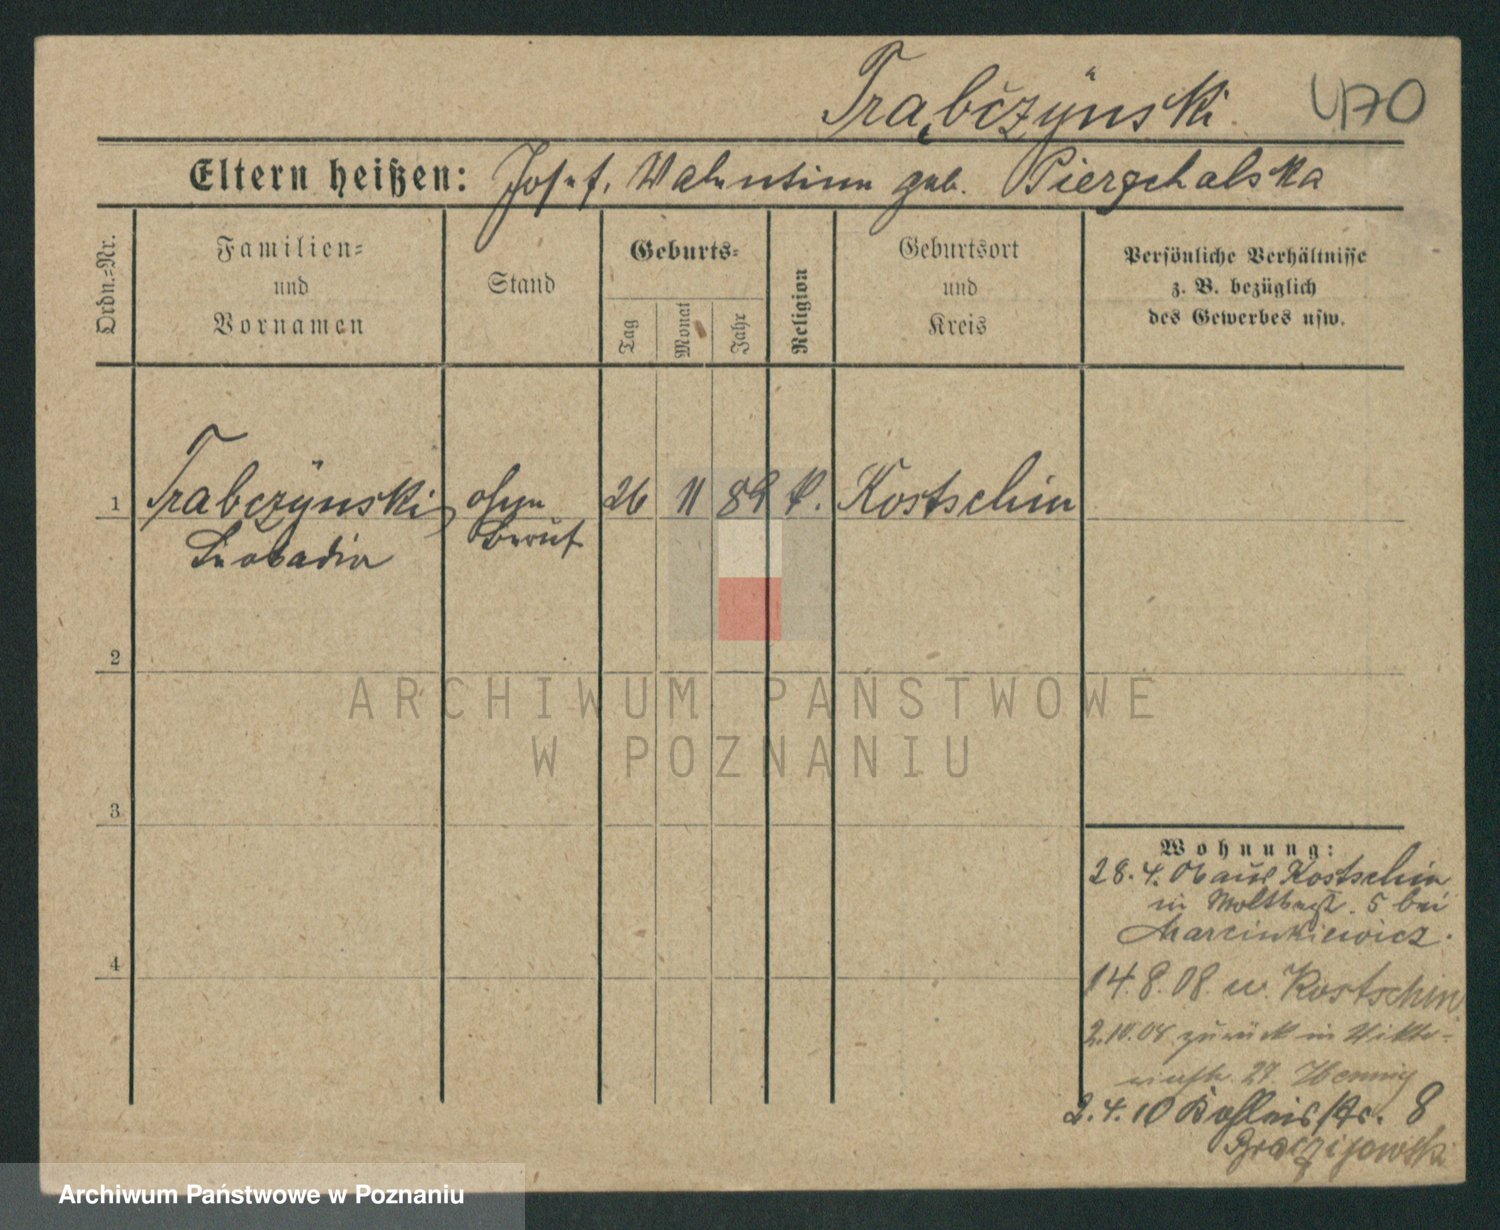 Trąbczÿnski 470
Eltern heißen: Josef, Valentina geb. Pierzchalska
Ordn.-Nr.
Familien-
und
Vornamen
Stand
Geburts-
Tag
Monat
Jahr
Religion
Geburtsort
und
Kreis
Persönliche Verhältnisse
z. B. bezüglich
des Gewerbes usw.
1 Trabczÿnski ohne 26 11 89 k. Kostschin
Leokadia Beruf
2
3
4
ARCHIWUM PAŃSTWOWE
W POZNANIU
Wohnung:
28.4.06 aus Kostschin
in 5 bei
Marcinkiewicz.
14.8.08. n. Kostschin
2.10.08 zurück in Vikto-
riastr. 27. Hennig
2.4.10 8
Archiwum Państwowe w Poznaniu